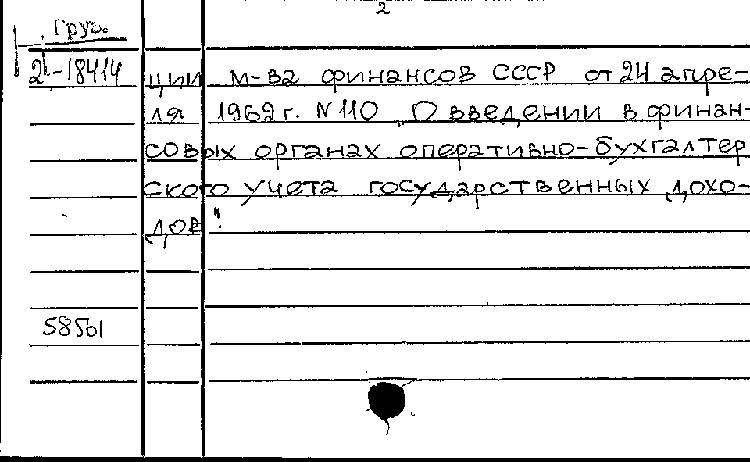 2
Груз.
2-18414
ции м-ва финансов СССР от 24 апре-
ля 1962 г. N 110 „О введении в финан-
совых органах оперативно-бухгалтер
ского учета государственных дохо-
дов".
58501